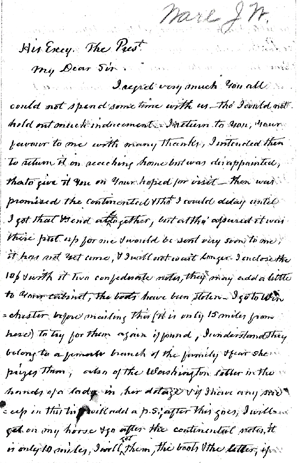 Ware J. W.
His Excy. The Prest
My Dear Sir.
I regret very much you all
could not spend some time with us. tho' I could not
hold out much inducement. I return to you, your
favour to me with many thanks, I intended then
to return it on reaching home but was disappointed,
to give it you on your hoped for visit – then was
promised the continental & tho't I could delay until
I got that & send altogether, but altho' assured it was
there put up for me & would be sent very soon to me
it has not yet come, & I will not wait longer. I enclose the
& with it two confederate notes, they may add a little
to your cabinet, the boots have been stolen. I go to Win
chester before mailing this (it is only 15 miles from
here) to try for them again if found, I understand they
belong to a female branch of the family & fear she
prizes them, even of the Washington letter in the
hands of a lady in her dotage & if I have any suc
cess in this will add a p.s; after this goes, I will
get on my horse & go after the continental notes, it
is only 10 miles, I will get them, the boots & the letter, if